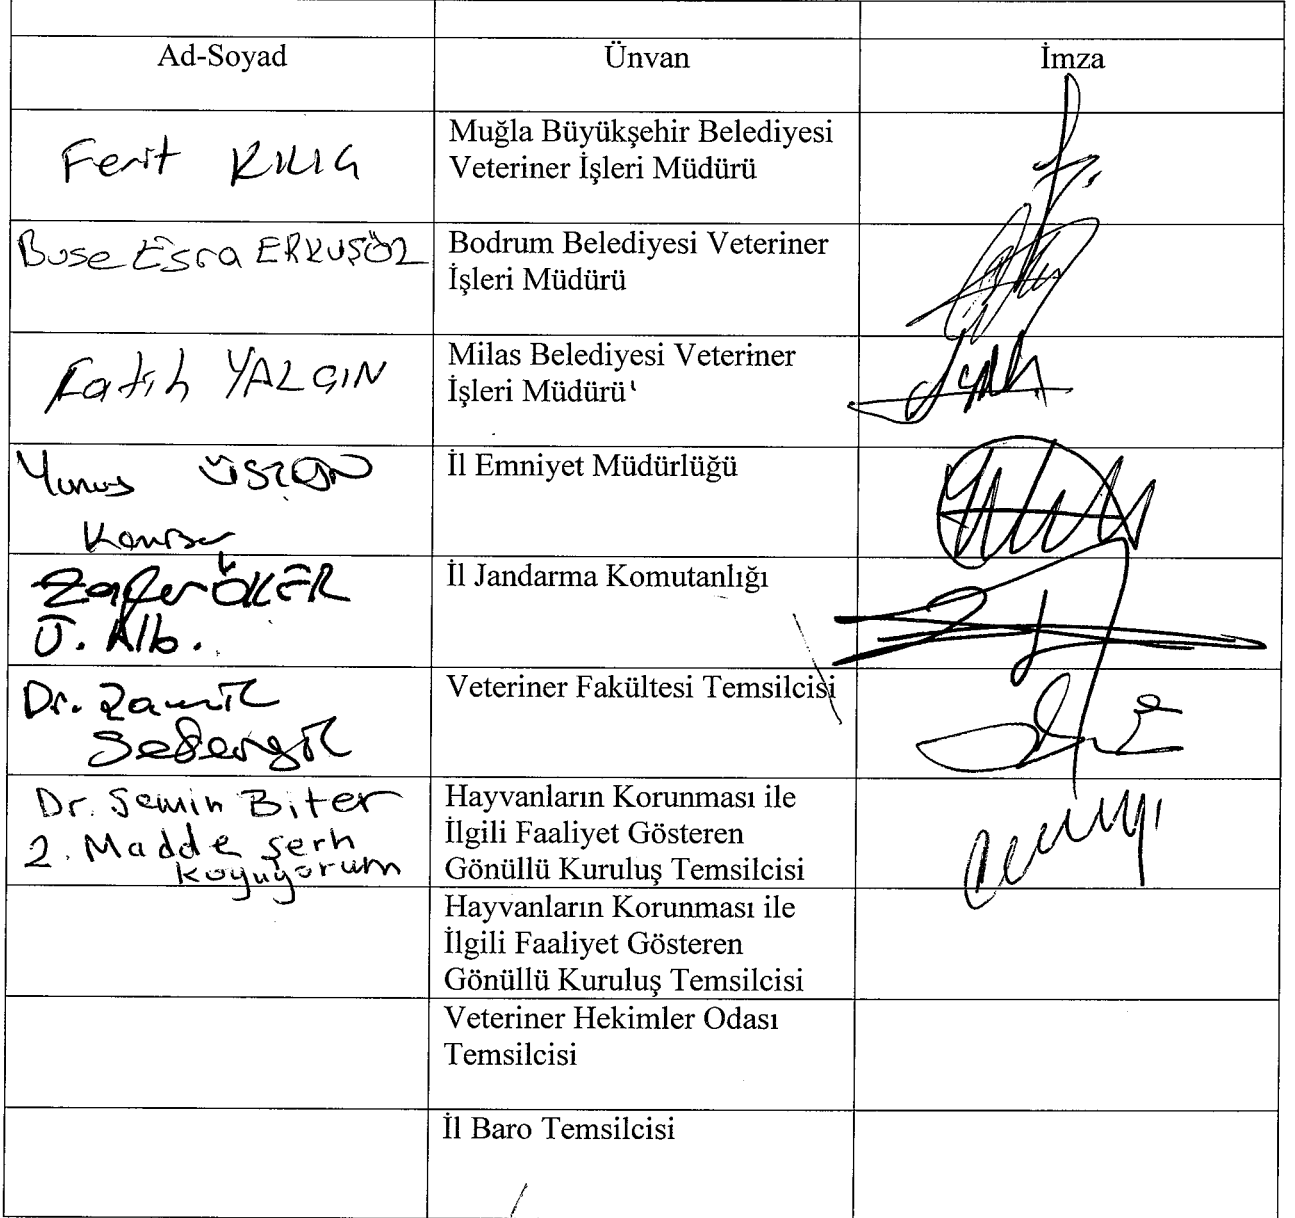 Ad-Soyad Ünvan İmza
Ferit KILIÇ
Muğla Büyükşehir Belediyesi
Veteriner İşleri Müdürü
Buse Esra ERKUŞÖZ
Bodrum Belediyesi Veteriner
İşleri Müdürü
Fatih YALÇIN
Milas Belediyesi Veteriner
İşleri Müdürü
Yunus
İl Emniyet Müdürlüğü
Komiser
Zafer ÖKER
İl Jandarma Komutanlığı
J. Alb.
Dr.
Veteriner Fakültesi Temsilcisi
Dr. Semin Biter
2. Madde şerh
koyuyorum
Hayvanların Korunması ile
İlgili Faaliyet Gösteren
Gönüllü Kuruluş Temsilcisi
Hayvanların Korunması ile
İlgili Faaliyet Gösteren
Gönüllü Kuruluş Temsilcisi
Veteriner Hekimler Odası
Temsilcisi
İl Baro Temsilcisi